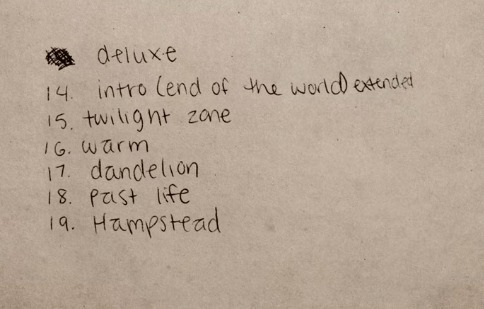 deluxe
14. intro (end of the world) extended
15. twilight zone
16. warm
17. dandelion
18. past life
19. Hampstead